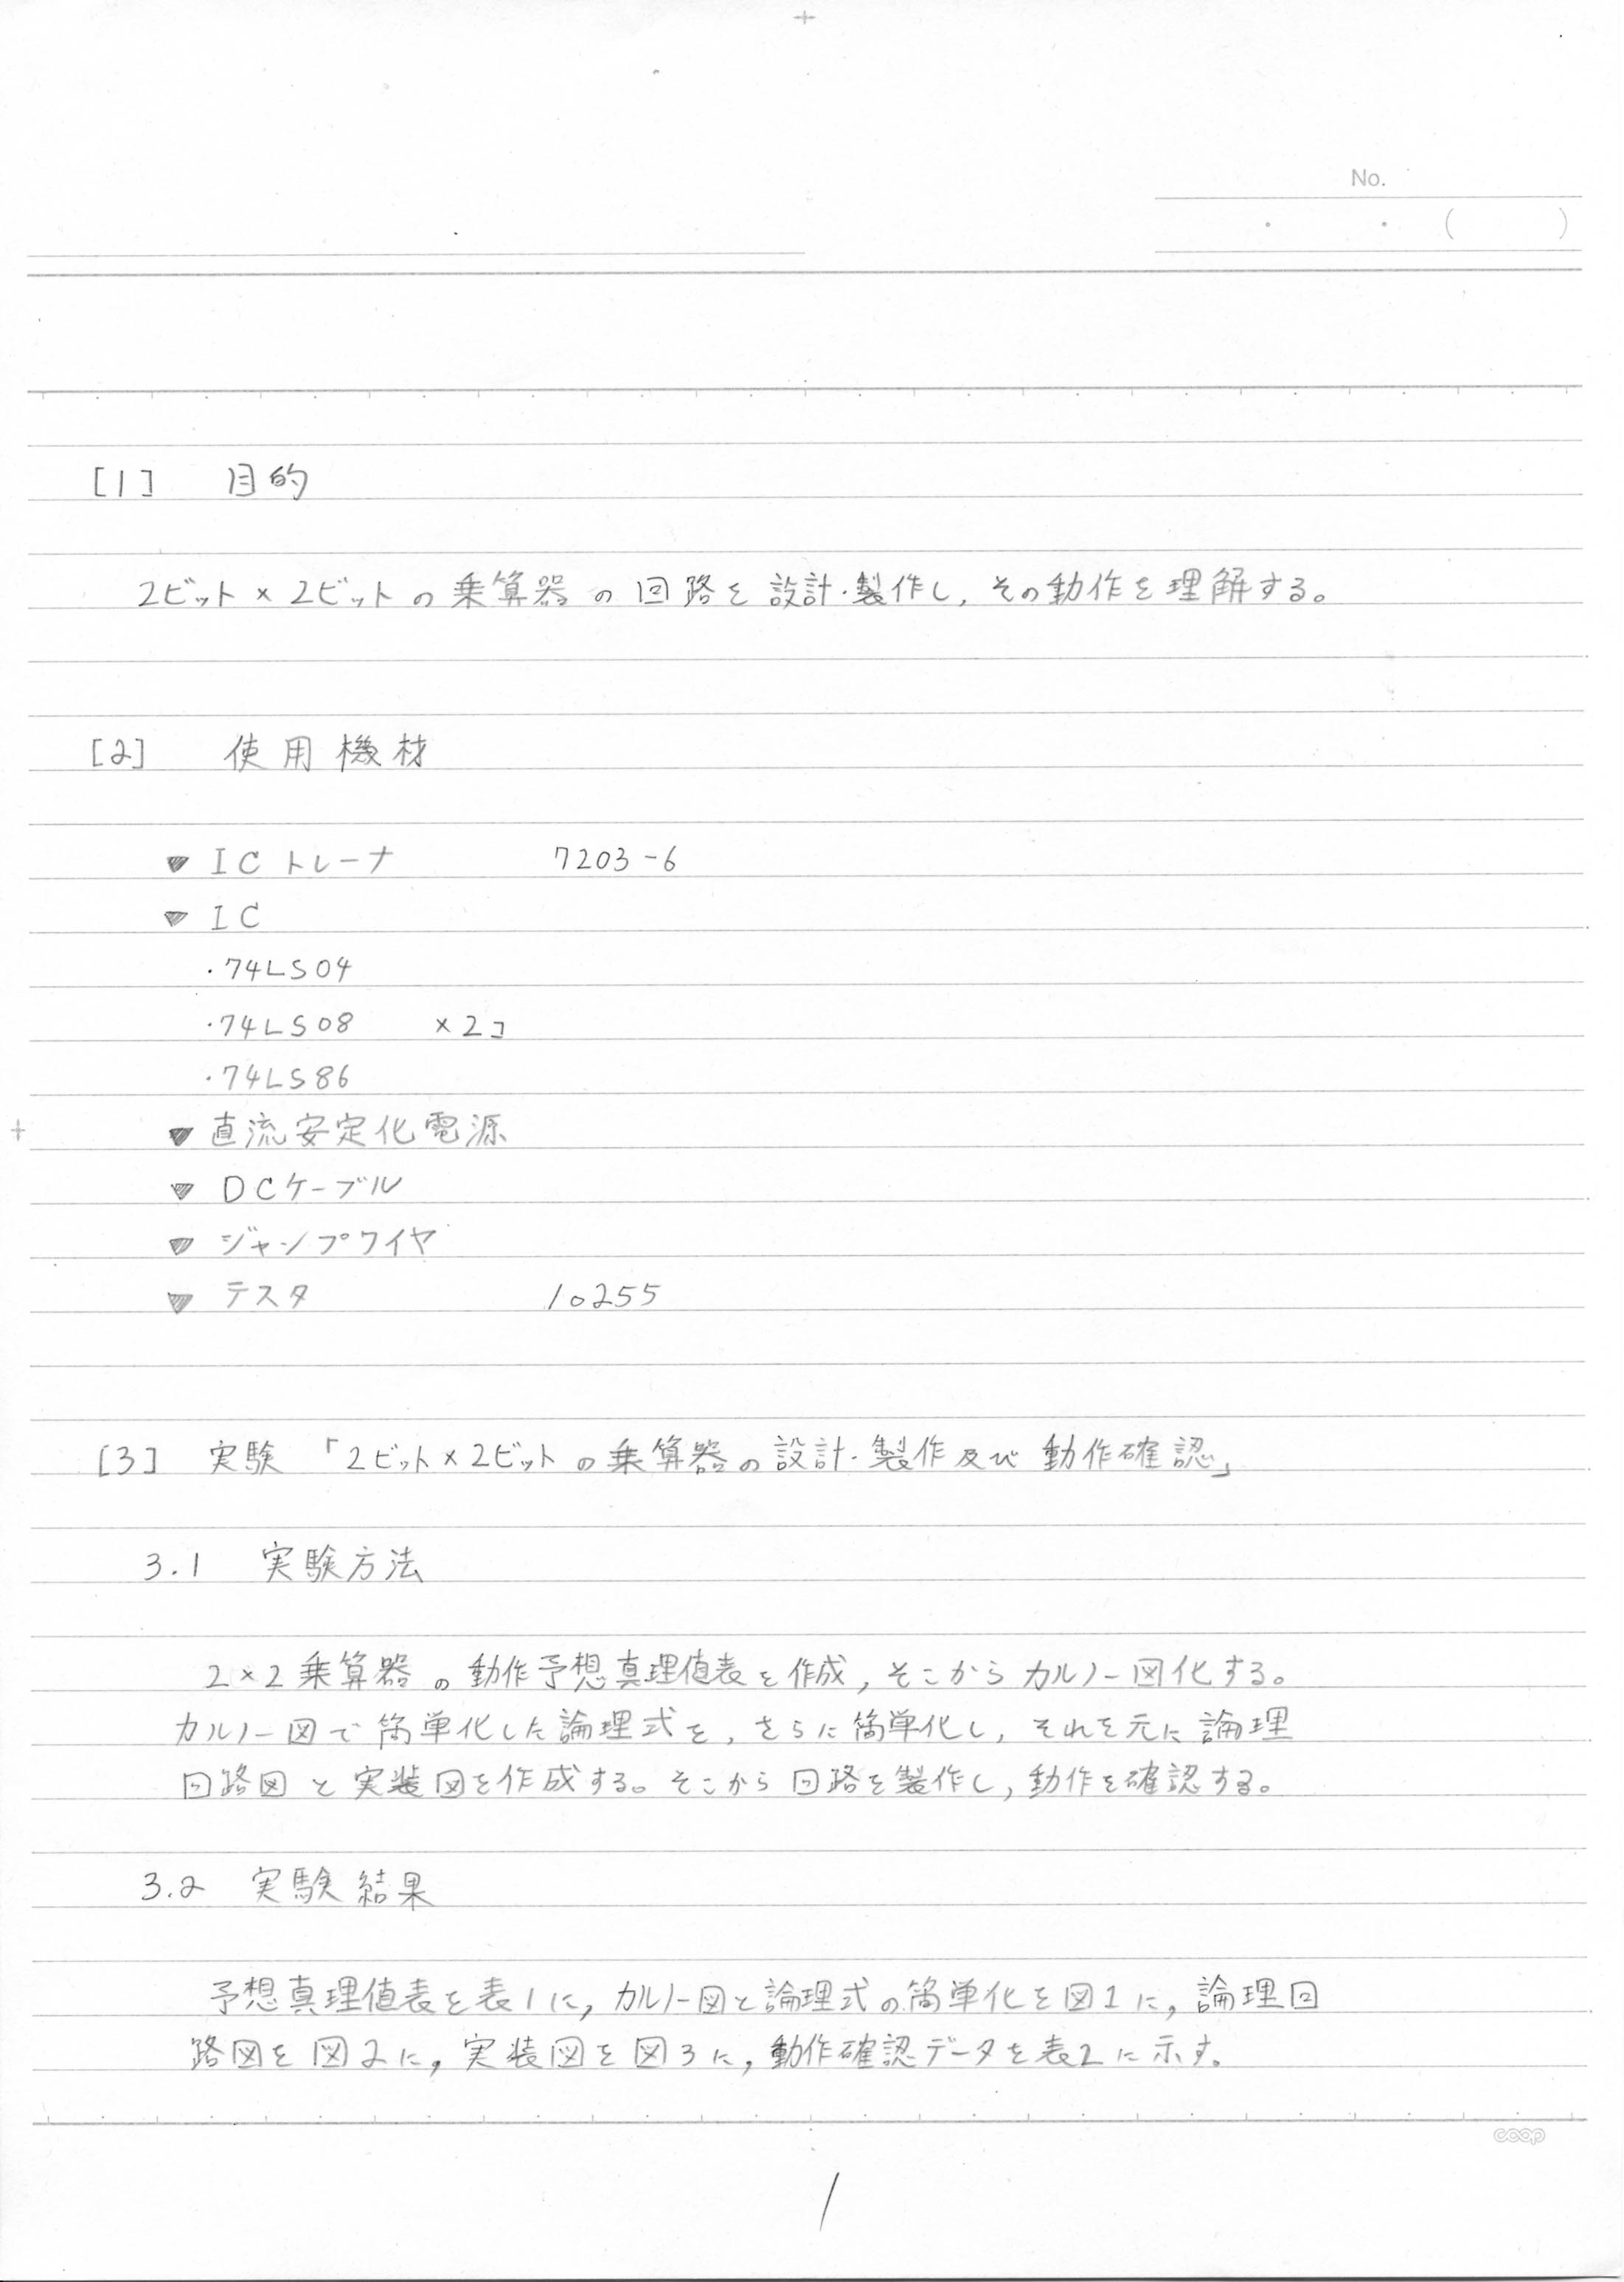 No.
・ ・ ( )
[1] 目的
2ビット×2ビットの乗算器の回路を設計・製作し, その動作を理解する。
[2] 使用機材
▼ ICトレーナ 7203-6
▼ IC
・74LS04
・74LS08 ×2コ
・74LS86
▼ 直流安定化電源
▼ DCケーブル
▼ ジャンプワイヤ
▼ テスタ 10255
[3] 実験「2ビット×2ビットの乗算器の設計・製作及び動作確認」
3.1 実験方法
2×2乗算器の動作予想真理値表を作成, そこからカルノー図化する。
カルノー図で簡単化した論理式を, さらに簡単化し, それを元に論理
回路図と実装図を作成する。そこから回路を製作し, 動作を確認する。
3.2 実験結果
予想真理値表を表1に, カルノー図と論理式の簡単化を図1に, 論理回
路図を図2に, 実装図を図3に, 動作確認データを表2に示す。
coop
1